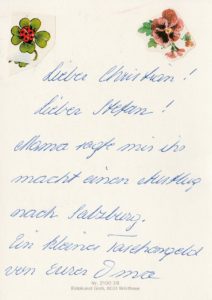 Lieber Christian!
lieber Stefan!
Mama sagte mir ihr
macht einen Ausflug
nach Salzburg.
Ein kleines Taschengeld
von Eurer Oma